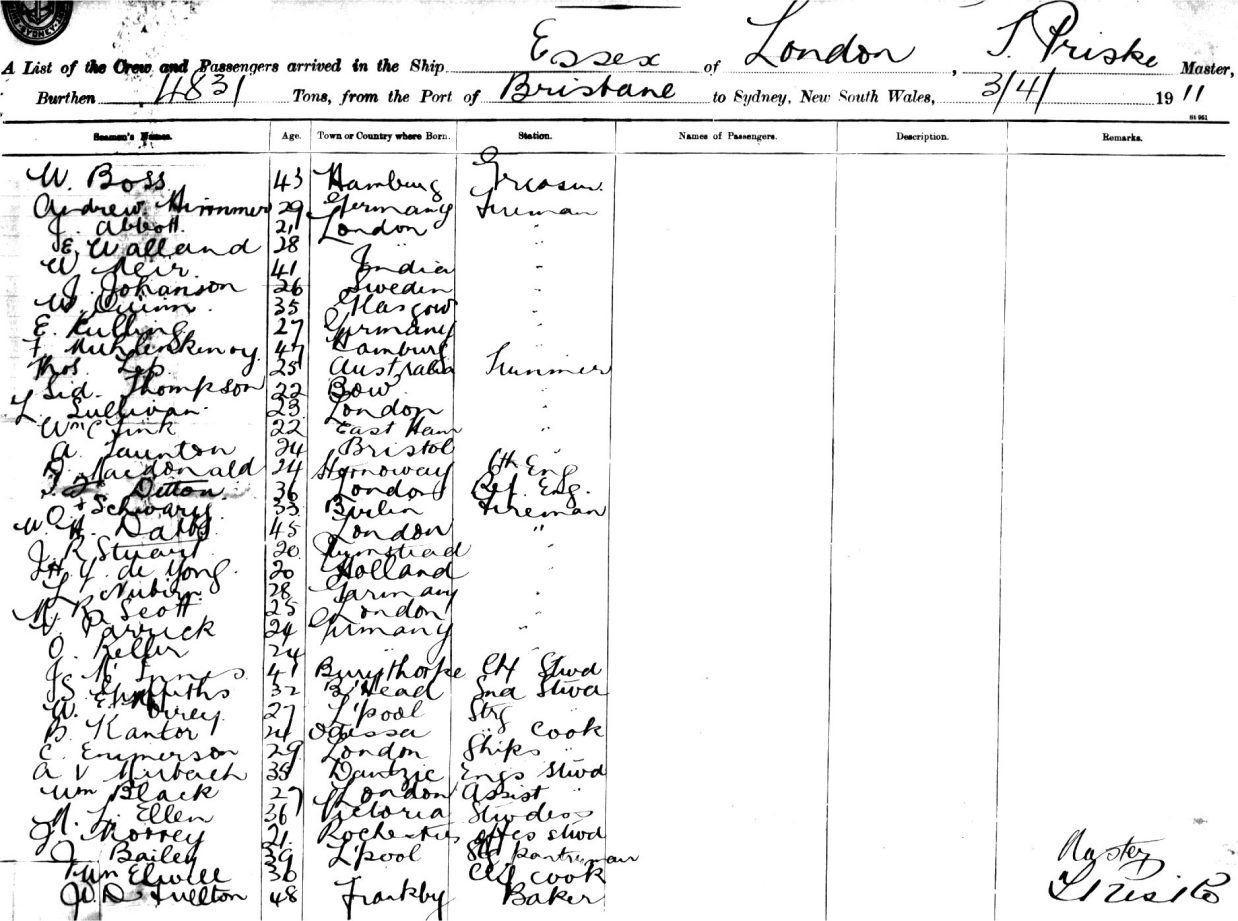 SYDNEY
A List of the Crew and Passengers arrived in the Ship Essex of London, T. Priske Master,
Burthen 4831 Tons, from the Port of Brisbane to Sydney, New South Wales, 3/4/ 1911
Seamen's Names. Age. Town or Country where Born. Station. Names of Passengers. Description. Remarks.
W. Boss 43 Hamburg Greaser
Andrew Himmer 29 Germany Fireman
J. Abbott. 21 London "
E. Walland 28 " "
W. Neir. 41 India "
J. Johanson 26 Sweden "
W. Quinn 35 Glasgow "
E. Rulling 27 Germany "
F. 47 Hamburg "
Thos. 25 Australia Trimmer
Sid. Thompson 22 Bow "
L. Sullivan 23 London "
Wm C Fink 22 East Ham "
A. Taunton 24 Bristol
Macdonald 24 Stornoway 6th Eng
Ditton. 36 London Ref. Eng.
Schwarz 33 Berlin Fireman
W. H. Dabbs 45 London "
J R Stuart 20 Plumstead
H. Y. de Yong. 20 Holland
L. 28 Garmany
R. Scott 25 London "
Varrick 24 Girmany "
O. Keller 24 "
J. McInnes 41 Burythorpe Chf Stwd
S. Griffiths 32 B'Head 2nd Stwd
W. E. 27 L'pool Strg "
B. Kantor 24 Odessa " Cook
C. Emmerson 29 London Ships "
A V Murbach 35 Dantzic Engs Stwd
Wm Black 27 London Assist "
M. L. Ellen 36 Victoria Stwdess
J. Morrey 21 Rochester Offes Stwd
J. Bailey 39 L'pool Stg pantryman
Wm Elwell 36 " Chf cook
W. D. Fullton 48 Frankby Baker
Master
T Priske